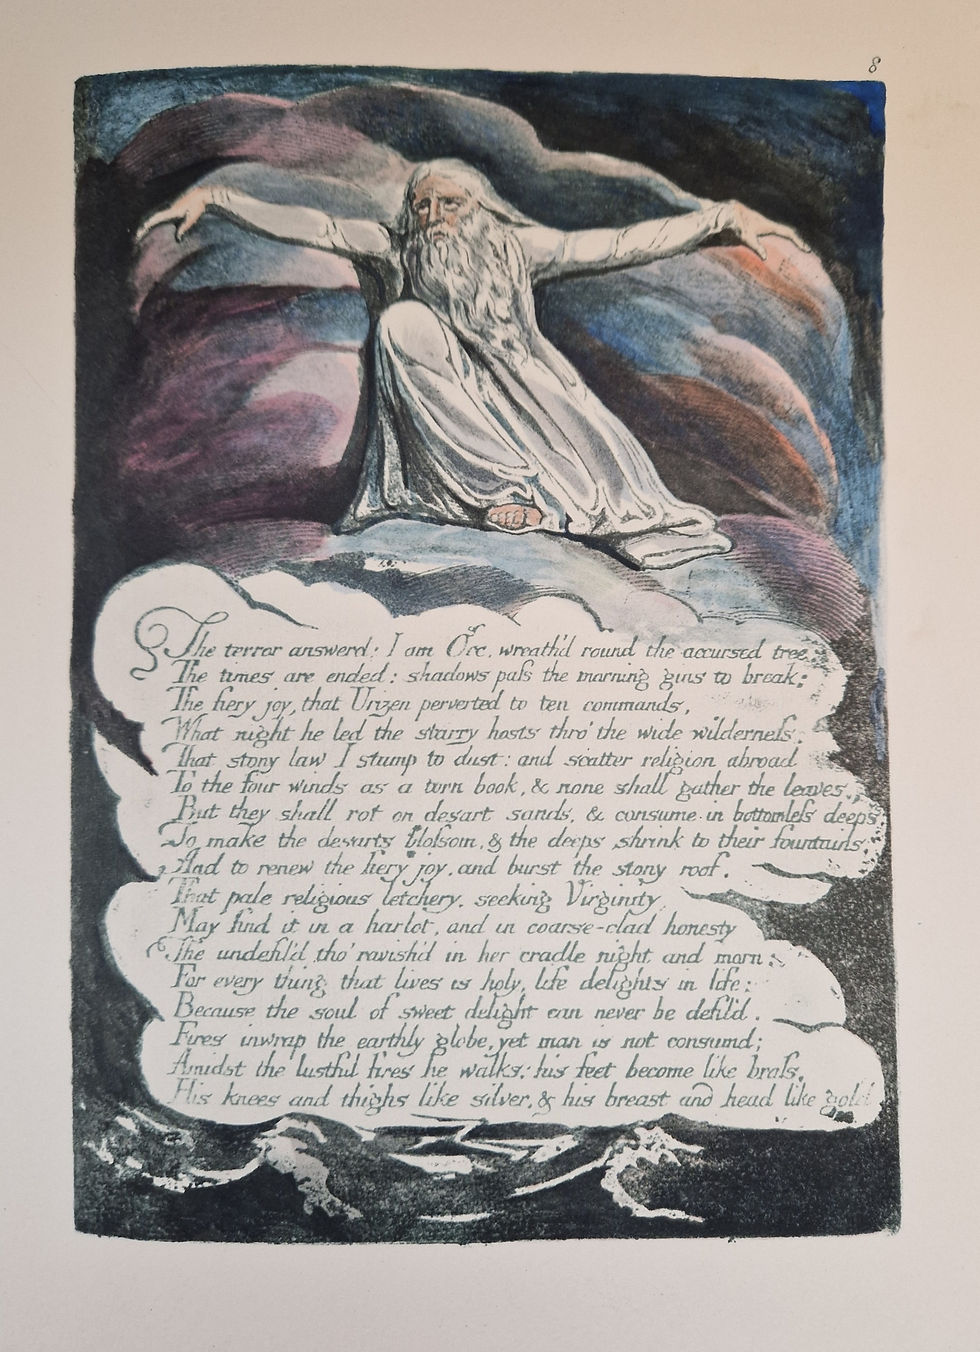 8
The terror answerd: I am Orc, wreath'd round the accursed tree:
The times are ended: shadows pass the morning gins to break;
The fiery joy, that Urizen perverted to ten commands,
What night he led the starry hosts thro' the wide wilderness:
That stony law I stamp to dust: and scatter religion abroad
To the four winds as a torn book, & none shall gather the leaves;
But they shall rot on desart sands, & consume in bottomless deeps;
To make the desarts blossom, & the deeps shrink to their fountains,
And to renew the fiery joy, and burst the stony roof.
That pale religious letchery, seeking Virginity,
May find it in a harlot, and in coarse-clad honesty
The undefil'd tho' ravish'd in her cradle night and morn:
For every thing that lives is holy, life delights in life;
Because the soul of sweet delight can never be defil'd.
Fires inwrap the earthly globe, yet man is not consumd;
Amidst the lustful fires he walks: his feet become like brass,
His knees and thighs like silver, & his breast and head like gold.